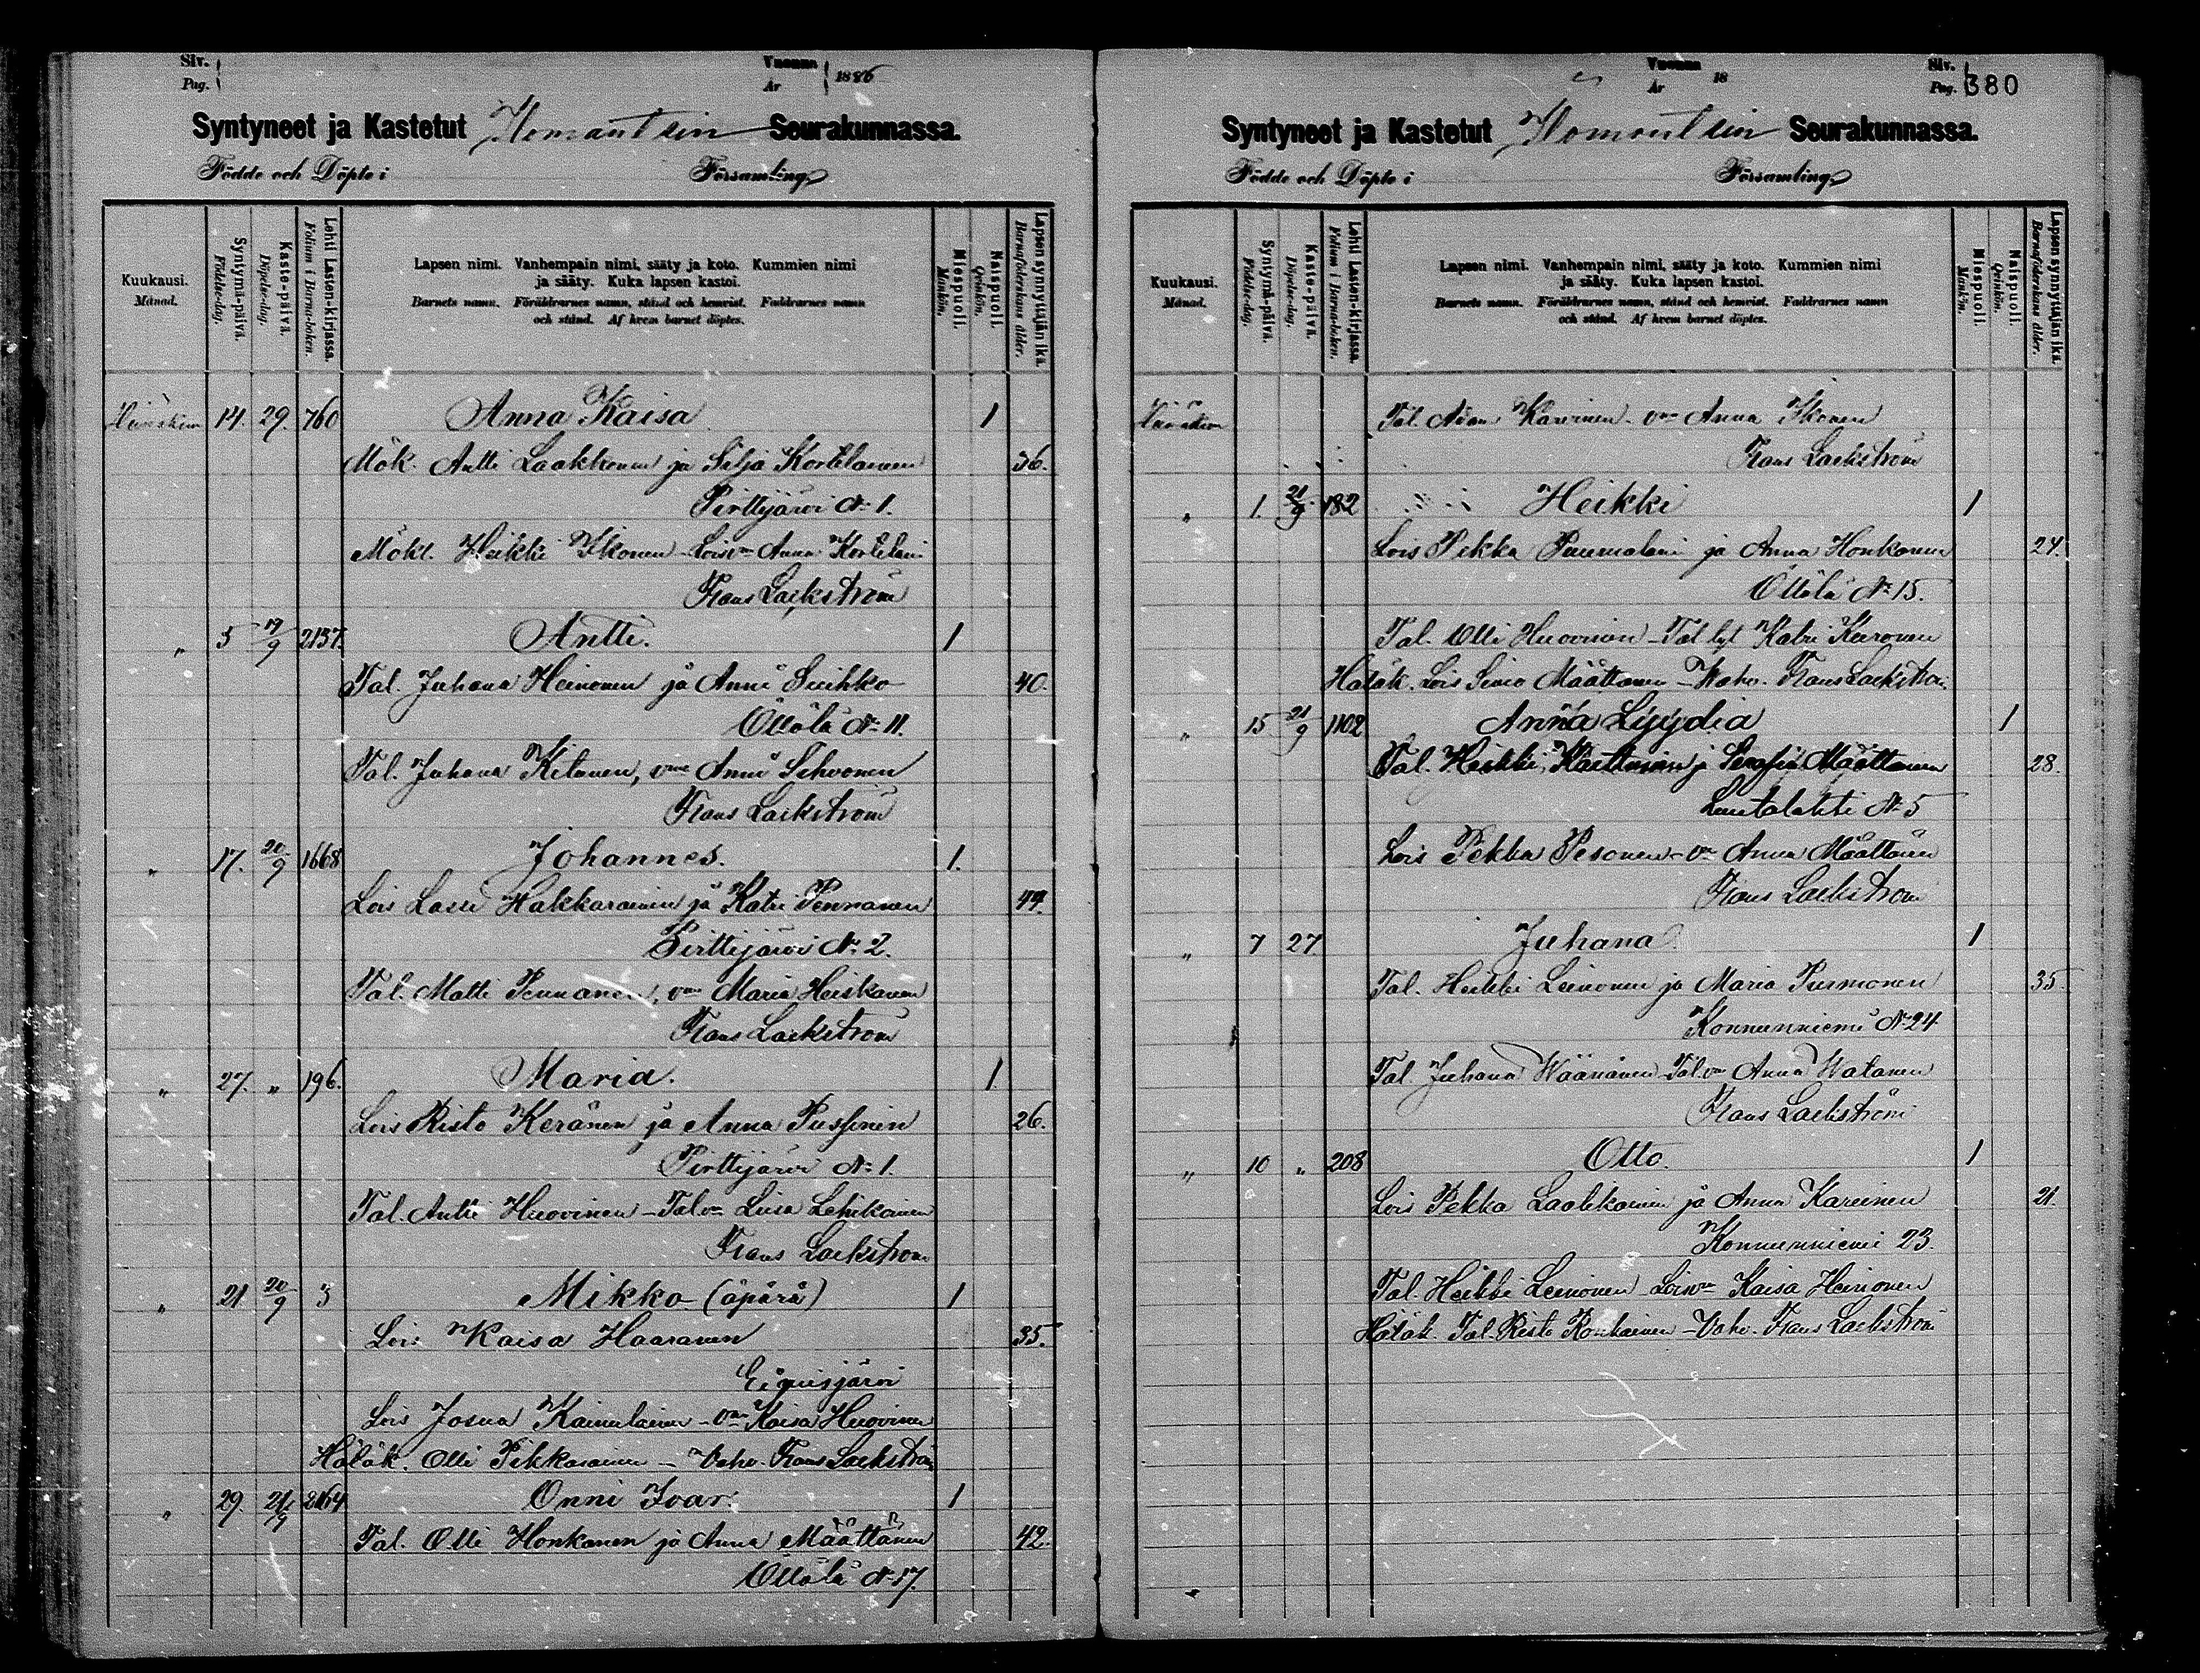 Siv.
Pag.
Vuonna
År 1886
Syntyneet ja Kastetut Ilomantsin Seurakunnassa.
Födde och Döpte i Församling.
Kuukausi. Månad.
Syntymä-päivä. Födelse-dag.
Kaste-päivä. Döpelse-dag.
Lehti Lasten-kirjassa. Folium i Barna-boken.
Lapsen nimi. Vanhempain nimi, sääty ja koto. Kummien nimi
ja sääty. Kuka lapsen kastoi.
Barnets namn. Föräldrarnes namn, stånd och hemvist. Faddrarnes namn
och stånd. Af hvem barnet döptes.
Miespuoli. Mankön.
Naispuoli. Qvinkön.
Lapsen synnyttäjän ikä. Barnaföderskans ålder.
14. 29. 760 Anna Kaisa 1
Mök. Antti Laakkonen ja Silja Kortelainen 36.
Pirttijärvi No 1.
Mökl. Heikki Ikonen - Lois vmo Anna Kortelain
Frans Lackström
" 5 19/9 2137. Antti. 1
Tal. Juhana Heinonen ja Anni Suihko 40.
Öllölä No 11.
Tal. Juhana Kilanen, vmo Anni Sihvonen
Frans Lackström
" 17. 20/9 1668 Johannes. 1.
Lois Lassi Hakkarainen ja Katri Pennanen 44.
Pirttijärvi No 2.
Tal. Matti Pennanen, vmo Maria Heiskanen
Frans Lackström
" 27. " 196. Maria. 1.
Lois Risto Keränen ja Anna Pussinen 26.
Pirttijärvi No 1.
Tal. Antti Huovinen - Tal vmo Liisa Lehikoinen
Frans Lackström
" 21 20/9 3 Mikko (äpärä) 1
Lois Kaisa Haaranen 35.
Lois Josua Kainulainen - vmo Kaisa Huovinen
Hätäk. Olli Pikkarainen - Vahv. Frans Lackström
" 29. 21/9 2164 Onni Ivar. 1
Tal. Olli Honkanen ja Anna Määttänen 42.
Öllölä No 17.
Vuonna
År 18
Siv.
Pag. 380
Syntyneet ja Kastetut Ilomantsin Seurakunnassa.
Födde och Döpte i Församling.
Kuukausi. Månad.
Syntymä-päivä. Födelse-dag.
Kaste-päivä. Döpelse-dag.
Lehti Lasten-kirjassa. Folium i Barna-boken.
Lapsen nimi. Vanhempain nimi, sääty ja koto. Kummien nimi
ja sääty. Kuka lapsen kastoi.
Barnets namn. Föräldrarnes namn, stånd och hemvist. Faddrarnes namn
och stånd. Af hvem barnet döptes.
Miespuoli. Mankön.
Naispuoli. Qvinkön.
Lapsen synnyttäjän ikä. Barnaföderskans ålder.
Tal. Adam Karvinen - vmo Anna Ikonen
Frans Lackström
" 1. 21/9 182 Heikki 1
Lois Pekka Puumalain ja Anna Honkanen 24.
Öllölä No 15.
Tal. Olli Huovinen - Tal tyt Katri Kuronen
Hätäk. Lois Simo Määttänen - Vahv. Frans Lackström.
" 15 21/9 1102 Anna Lyydia 1
Tal. Heikki Karttunen ja Serafia Määttänen 28.
Luutalahti No 5
Lois Pekka Pesonen - vmo Anna Määttänen
Frans Lackström
" 7 27 Juhana. 1
Tal. Heikki Leinonen ja Maria Purmonen 35
Konnunniemi No 24
Tal. Juhana Väänänen - Tal. vmo Anna Vatanen
Frans Lackström
" 10 " 208 Otto. 1
Lois Pekka Laatikainen ja Anna Kareinen 21.
Konnunniemi 23.
Tal. Heikki Leinonen - Lois vmo Kaisa Heinonen
Hätäk. Tal. Risto Ronkainen - Vahv. Frans Lackström